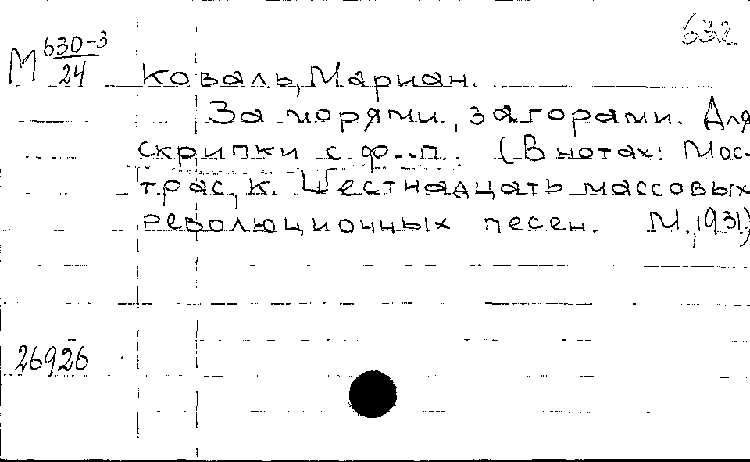 632
М 630-3/24 Коваль, Мариан.
За морями, за горами. Для
скрипки с ф.-п. (В нотах: Мос-
трас, К. Шестнадцать массовых
революционных песен. М., 1931)
26926